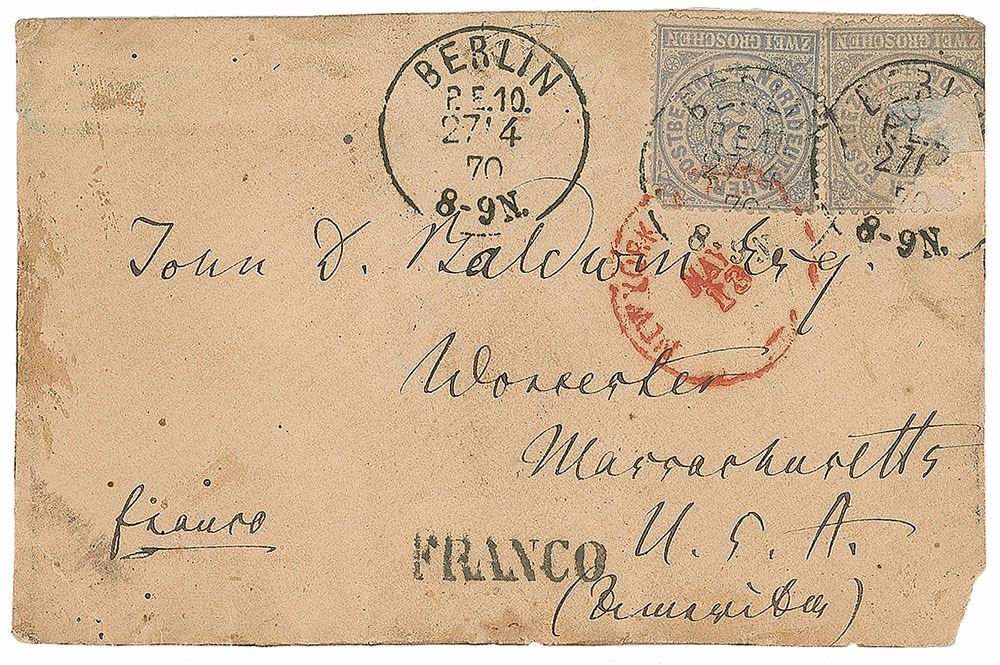 BERLIN
P.E.10.
27/4
70
8-9N.
ZWEI GROSCHEN
NORDDEUTSCHER POSTBEZIRK
P.E.10
70
8-9N.
ZWEI GROSCHEN
27/
8-9N.
NEW YORK
MAY
John D. Baldwin Esq.
Worcester
Massachusetts
U. S. A.
franco
FRANCO